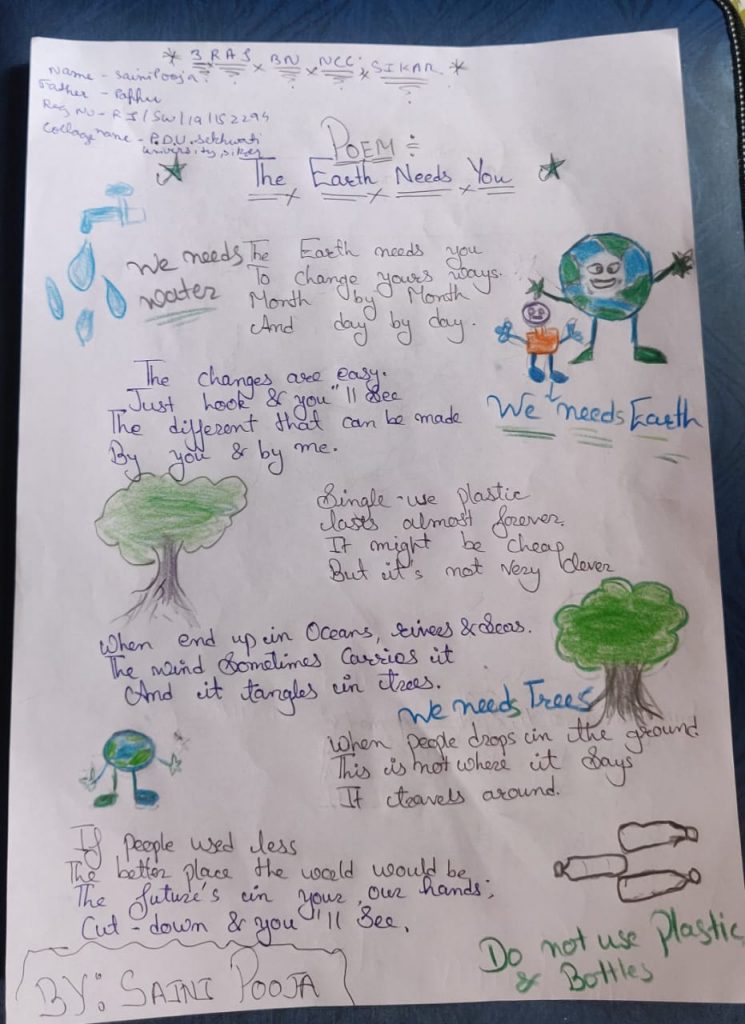 * 3 RAJ BN NCC, SIKAR *
Name - Saini Pooja
Father - Pappu
Reg No - RJ/SW/19/152294
Collage name - P.D.U. Sekhwati
University, Sikar
POEM :
The Earth Needs You
We needs
water
The Earth needs you
To change yours ways.
Month by Month
And day by day.
The changes are easy.
Just look & you"ll See
The different that can be made
By you & by me.
We needs Earth
Single-use plastic
lasts almost forever.
It might be cheap
But it's not very clever
When end up in Oceans, rivers & Seas.
The wind Sometimes Carries it
And it tangles in trees.
We needs Trees
When people drops in the ground
This is not where it Says
It travels around.
If people used less
The better place the world would be
The future's in your, our hands;
Cut-down & you"ll See.
Do not use Plastic
& Bottles
BY: SAINI POOJA